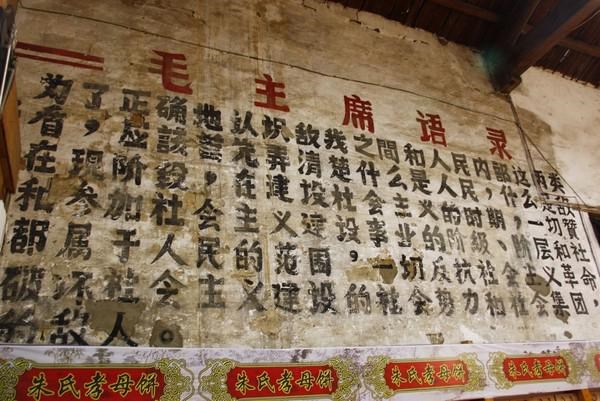 毛主席语录
为了正确地认识敌我之间和人民内部这两类
盾，应该首先弄清楚什么是人民，什么是敌
在现阶段，在建设社会主义的时期，一切赞
和参加社会主义建设事业的阶级、阶层和社
都属于人民的范围，一切反抗社会主义革命，
破坏社会主义建设的社会势力和社会集团
的敌人。
朱氏孝母饼 朱氏孝母饼 朱氏孝母饼 朱氏孝母饼